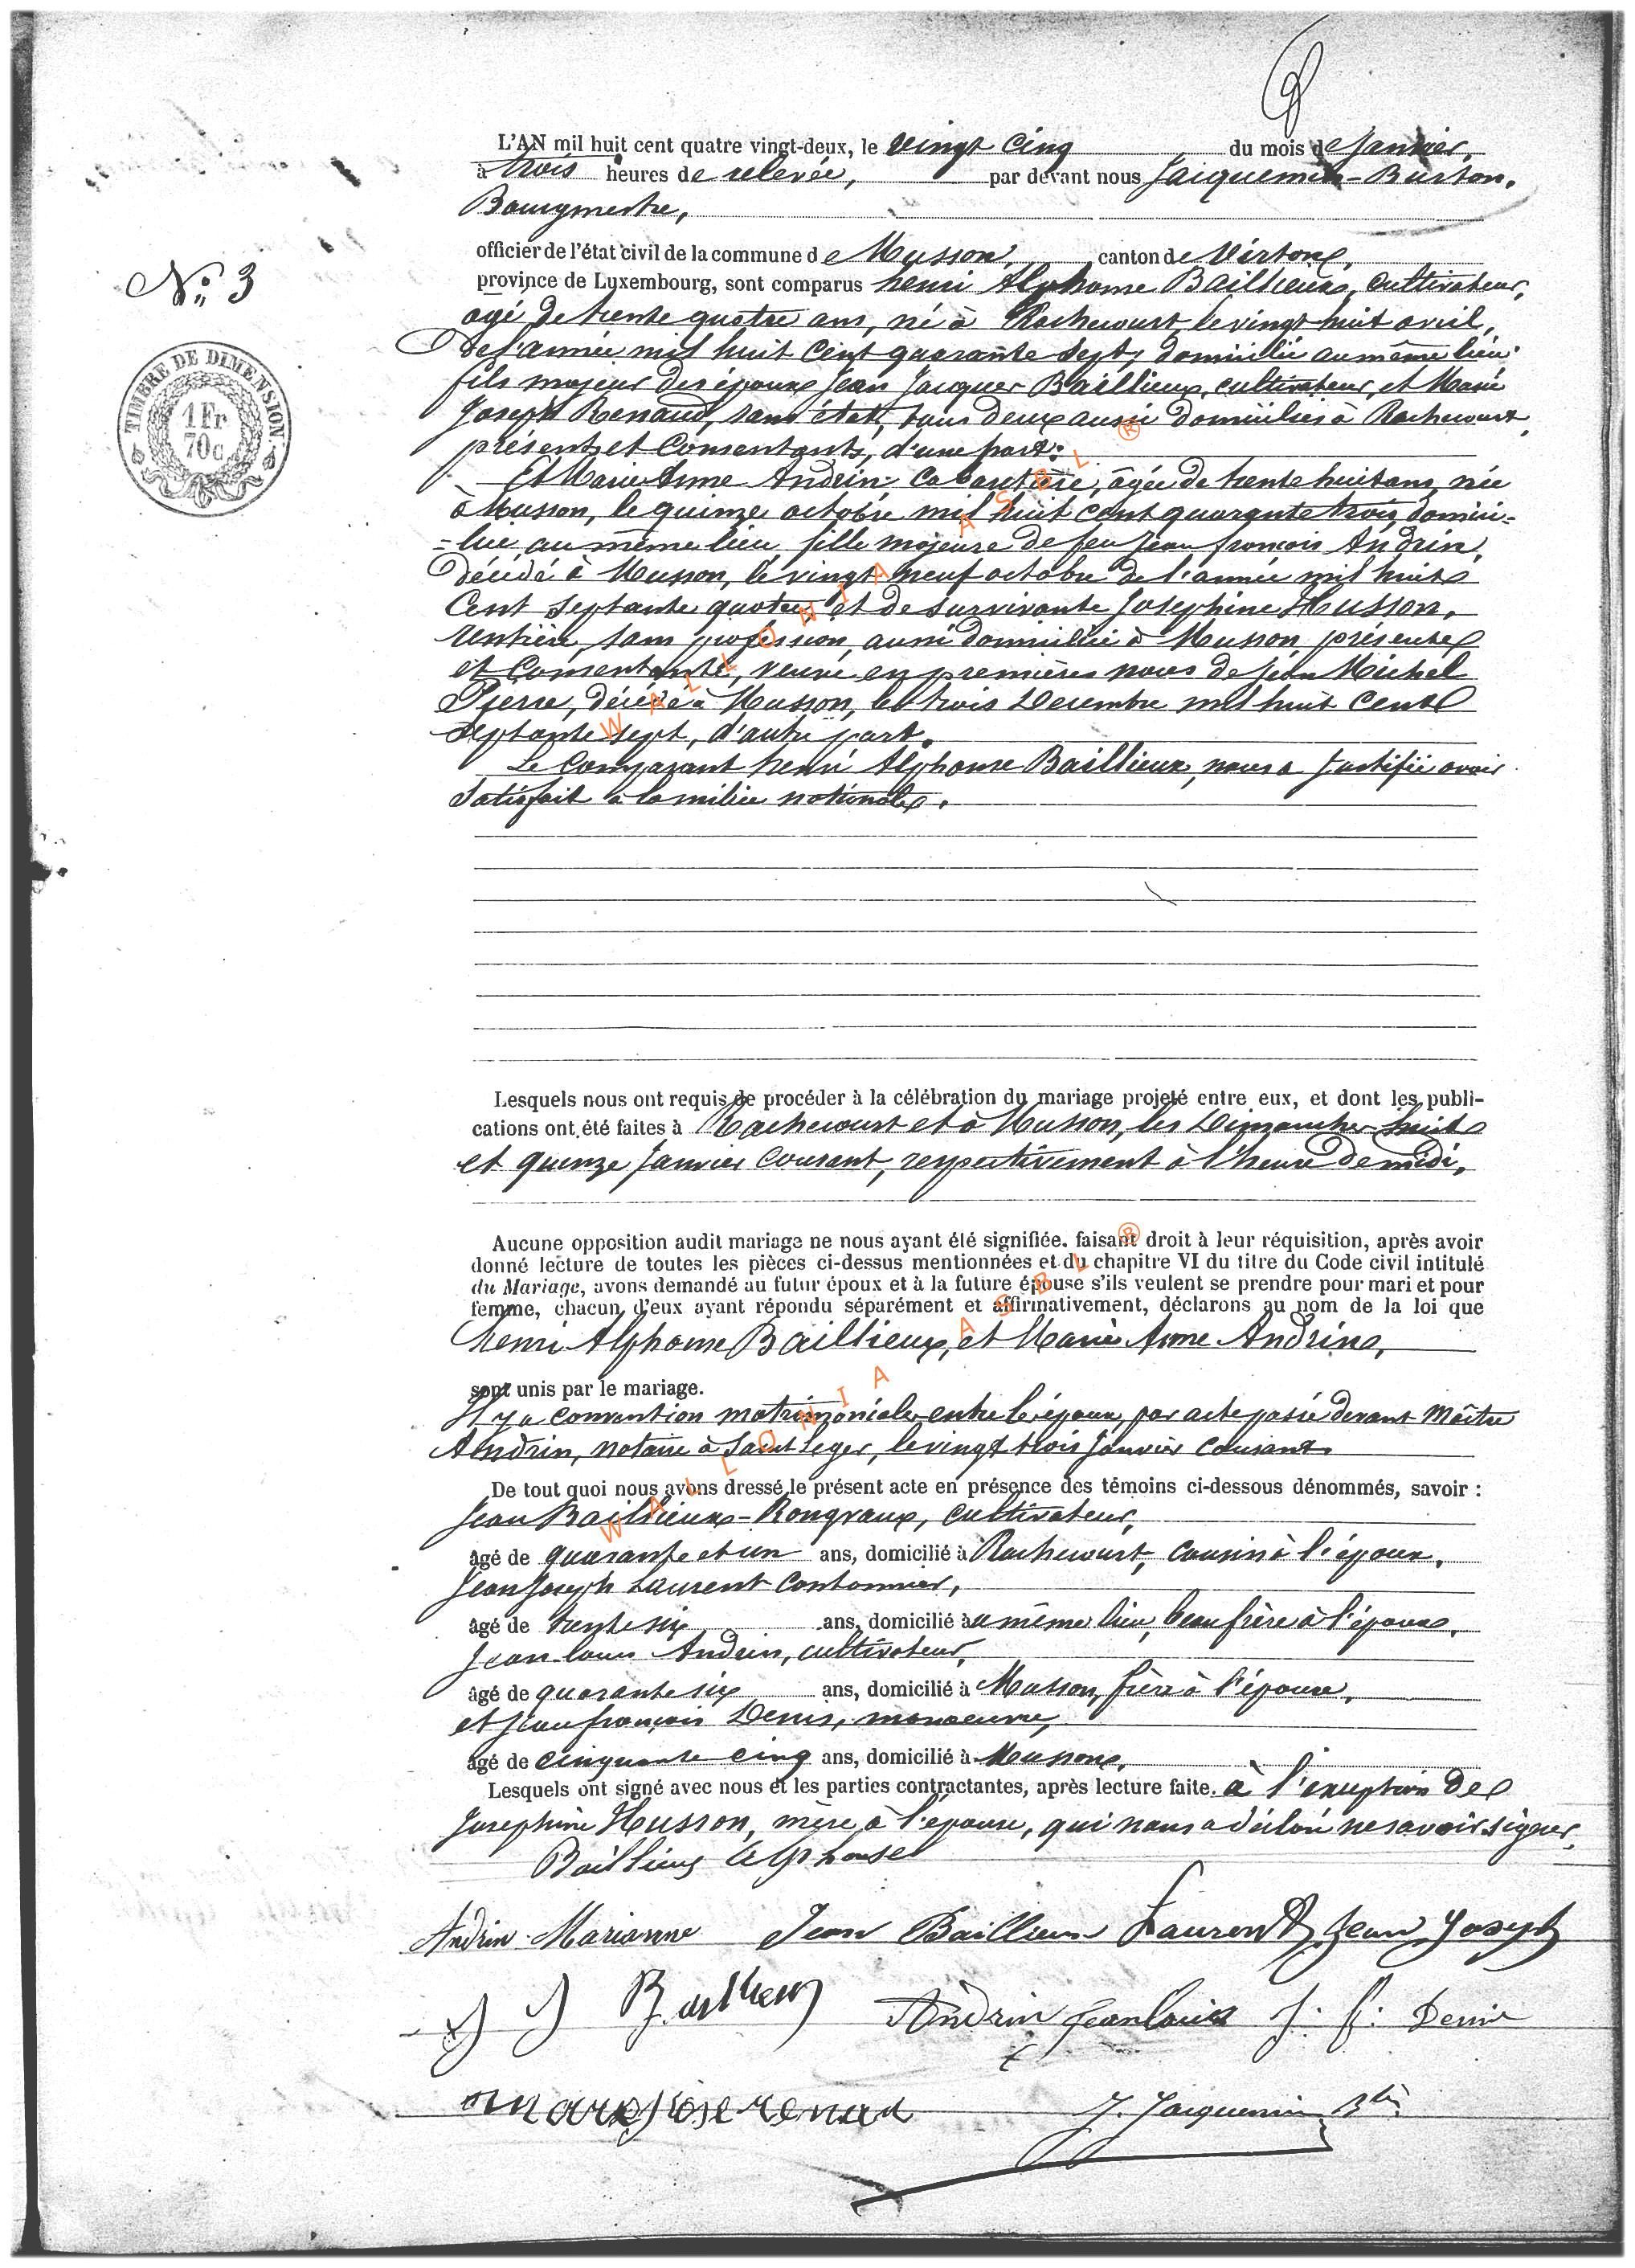 L'AN mil huit cent quatre vingt-deux, le vingt cinq du mois de Janvier,
à trois heures de relevée, par devant nous Jacquemin-Burton,
Bourgmestre,
officier de l'état civil de la commune de Musson, canton de Virton,
N° 3
province de Luxembourg, sont comparus henri Alphonse Baillieux, cultivateur,
agé de trente quatre ans, né à Rachecourt, le vingt huit avril,
de l'année mil huit cent quarante sept, domicilié au même lieu
fils majeur des époux Jean Jacques Baillieux, cultivateur, et Marie
Joseph Renaud, sans état, tous deux aussi domiciliés à Rachecourt,
présents et Consentants, d'une part:
TIMBRE DE DIMENSION.
1 Fr
70c
Et Marie Anne Andrin, Cabaretière, âgée de trente huit ans, née
à Musson, le quinze octobre mil huit cent quarante trois, domici-
=liée au même lieu, fille majeure de feu Jean françois Andrin,
décédé à Musson, le vingt neuf octobre de l'année mil huit
Cent septante quatre, et de survivante Josephine Husson,
rentière, sans profession, aussi domiciliée à Musson, présente
et Consentante, veuve en premières noces de Jean Michel
Pierre, décédé à Musson, le trois Décembre mil huit Cent
septante sept, d'autre part.
Le Comparant henri Alphonse Baillieux, nous a justifié avoir
Satisfait à la milice nationale.
Lesquels nous ont requis de procéder à la célébration du mariage projeté entre eux, et dont les publi-
cations ont été faites à Rachecourt et à Musson, les Dimanches huit
et quinze Janvier Courant, respectivement à l'heure de midi,
Aucune opposition audit mariage ne nous ayant été signifiée. faisant droit à leur réquisition, après avoir
donné lecture de toutes les pièces ci-dessus mentionnées et du chapitre VI du titre du Code civil intitulé
du Mariage, avons demandé au futur époux et à la future épouse s'ils veulent se prendre pour mari et pour
femme, chacun d'eux ayant répondu séparément et affirmativement, déclarons au nom de la loi que
henri Alphonse Baillieux, et Marie Anne Andrin,
sont unis par le mariage.
Il y a convention matrimoniale entre les époux, par acte passé devant Maître
Andrin, notaire à Saint Leger, le vingt trois Janvier courant.
De tout quoi nous avons dressé le présent acte en présence des témoins ci-dessous dénommés, savoir :
Jean Baillieux-Rongvaux, cultivateur,
âgé de quarante et un ans, domicilié à Rachecourt, Cousin à l'époux,
Jean Joseph Laurent Cantonnier,
âgé de trente six ans, domicilié au même lieu, beau frère à l'époux,
Jean-Louis Andrin, cultivateur,
âgé de quarante six ans, domicilié à Musson, frère à l'épouse,
et Jean françois Denis, manoeuvre,
âgé de cinquante cinq ans, domicilié à Musson,
Lesquels ont signé avec nous et les parties contractantes, après lecture faite. à l'exception de
Josephine Husson, mère à l'épouse, qui nous a déclaré ne savoir signer.
Baillieux Alphonse
Andrin Marianne Jean Baillieux Laurent Jean Joseph
J J Baillieux Andrin Jean Louis J. f. Denis
marie jose renaud J. Jacquemin Btn
WALLONIA ASBL ®
WALLONIA ASBL ®